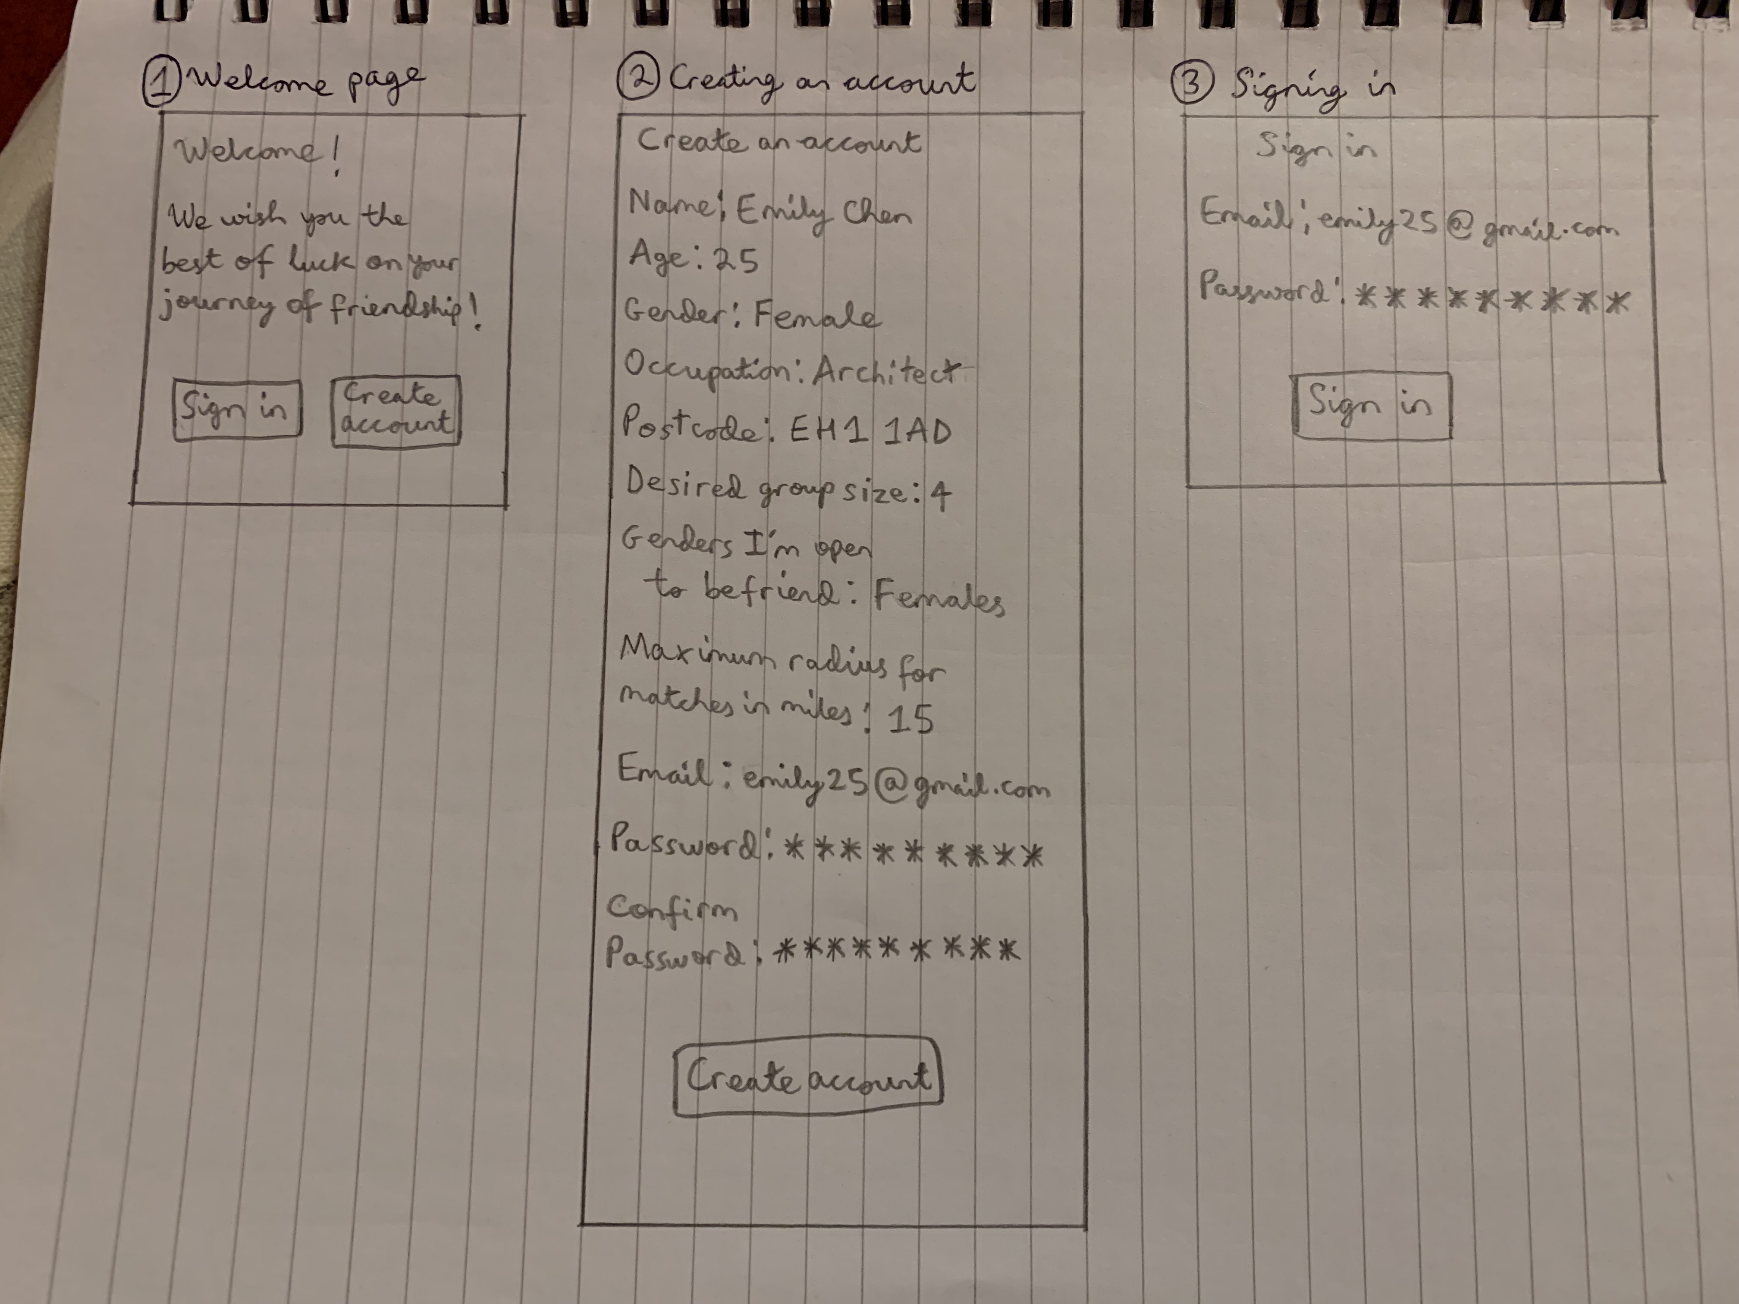 1 Welcome page
Welcome!
We wish you the
best of luck on your
journey of friendship!
Sign in
Create
account
2 Creating an account
Create an account
Name: Emily Chen
Age: 25
Gender: Female
Occupation: Architect
Postcode: EH1 1AD
Desired group size: 4
Genders I'm open
to befriend: Females
Maximum radius for
matches in miles: 15
Email: emily25@gmail.com
Password: *********
Confirm
Password: *********
Create account
3 Signing in
Sign in
Email: emily25@gmail.com
Password: *********
Sign in